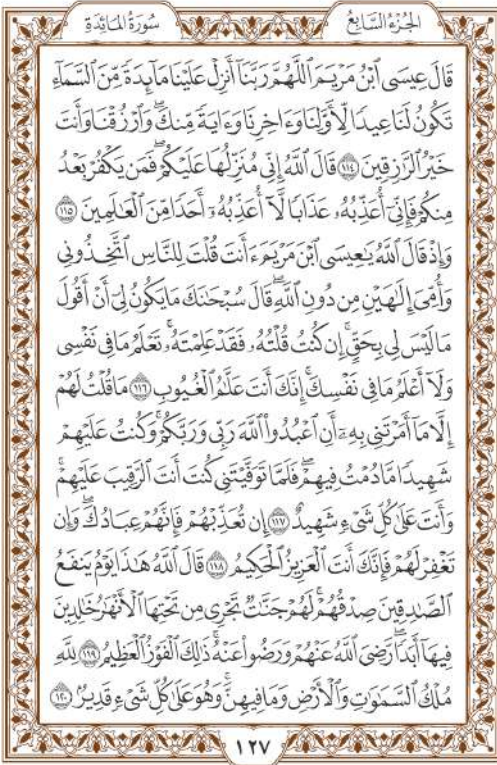 الجُزْءُ السَّابِعُ
سُورَةُ المَائِدَةِ
قَالَ عِيسَى ٱبۡنُ مَرۡيَمَ ٱللَّهُمَّ رَبَّنَآ أَنزِلۡ عَلَيۡنَا مَآئِدَةٗ مِّنَ ٱلسَّمَآءِ
تَكُونُ لَنَا عِيدٗا لِّأَوَّلِنَا وَءَاخِرِنَا وَءَايَةٗ مِّنكَۖ وَٱرۡزُقۡنَا وَأَنتَ
خَيۡرُ ٱلرَّٰزِقِينَ ١١٤ قَالَ ٱللَّهُ إِنِّي مُنَزِّلُهَا عَلَيۡكُمۡۖ فَمَن يَكۡفُرۡ بَعۡدُ
مِنكُمۡ فَإِنِّيٓ أُعَذِّبُهُۥ عَذَابٗا لَّآ أُعَذِّبُهُۥٓ أَحَدٗا مِّنَ ٱلۡعَٰلَمِينَ ١١٥
وَإِذۡ قَالَ ٱللَّهُ يَٰعِيسَى ٱبۡنَ مَرۡيَمَ ءَأَنتَ قُلۡتَ لِلنَّاسِ ٱتَّخِذُونِي
وَأُمِّيَ إِلَٰهَيۡنِ مِن دُونِ ٱللَّهِۖ قَالَ سُبۡحَٰنَكَ مَا يَكُونُ لِيٓ أَنۡ أَقُولَ
مَا لَيۡسَ لِي بِحَقٍّۚ إِن كُنتُ قُلۡتُهُۥ فَقَدۡ عَلِمۡتَهُۥۚ تَعۡلَمُ مَا فِي نَفۡسِي
وَلَآ أَعۡلَمُ مَا فِي نَفۡسِكَۚ إِنَّكَ أَنتَ عَلَّٰمُ ٱلۡغُيُوبِ ١١٦ مَا قُلۡتُ لَهُمۡ
إِلَّا مَآ أَمَرۡتَنِي بِهِۦٓ أَنِ ٱعۡبُدُواْ ٱللَّهَ رَبِّي وَرَبَّكُمۡۚ وَكُنتُ عَلَيۡهِمۡ
شَهِيدٗا مَّا دُمۡتُ فِيهِمۡۖ فَلَمَّا تَوَفَّيۡتَنِي كُنتَ أَنتَ ٱلرَّقِيبَ عَلَيۡهِمۡۚ
وَأَنتَ عَلَىٰ كُلِّ شَيۡءٖ شَهِيدٌ ١١٧ إِن تُعَذِّبۡهُمۡ فَإِنَّهُمۡ عِبَادُكَۖ وَإِن
تَغۡفِرۡ لَهُمۡ فَإِنَّكَ أَنتَ ٱلۡعَزِيزُ ٱلۡحَكِيمُ ١١٨ قَالَ ٱللَّهُ هَٰذَا يَوۡمُ يَنفَعُ
ٱلصَّٰدِقِينَ صِدۡقُهُمۡۚ لَهُمۡ جَنَّٰتٞ تَجۡرِي مِن تَحۡتِهَا ٱلۡأَنۡهَٰرُ خَٰلِدِينَ
فِيهَآ أَبَدٗاۖ رَّضِيَ ٱللَّهُ عَنۡهُمۡ وَرَضُواْ عَنۡهُۚ ذَٰلِكَ ٱلۡفَوۡزُ ٱلۡعَظِيمُ ١١٩ لِلَّهِ
مُلۡكُ ٱلسَّمَٰوَٰتِ وَٱلۡأَرۡضِ وَمَا فِيهِنَّۚ وَهُوَ عَلَىٰ كُلِّ شَيۡءٖ قَدِيرُۢ ١٢٠
١٢٧